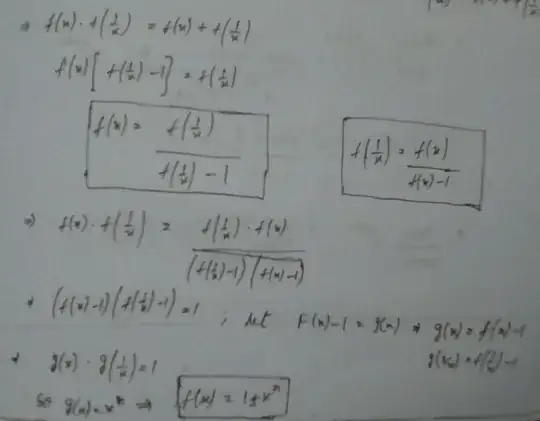 ⇒ f(x) · f(1/x) = f(x) + f(1/x)
f(x)[f(1/x) - 1] = f(1/x)
f(x) = f(1/x) / f(1/x) - 1
f(1/x) = f(x) / f(x) - 1
⇒ f(x) · f(1/x) = f(1/x) · f(x) / (f(1/x) - 1)(f(x) - 1)
⇒ (f(x) - 1)(f(1/x) - 1) = 1 ; let f(x) - 1 = g(x) ⇒ g(x) = f(x) - 1
g(1/x) = f(1/x) - 1
⇒ g(x) · g(1/x) = 1
So g(x) = xⁿ ⇒ f(x) = 1 ± xⁿ